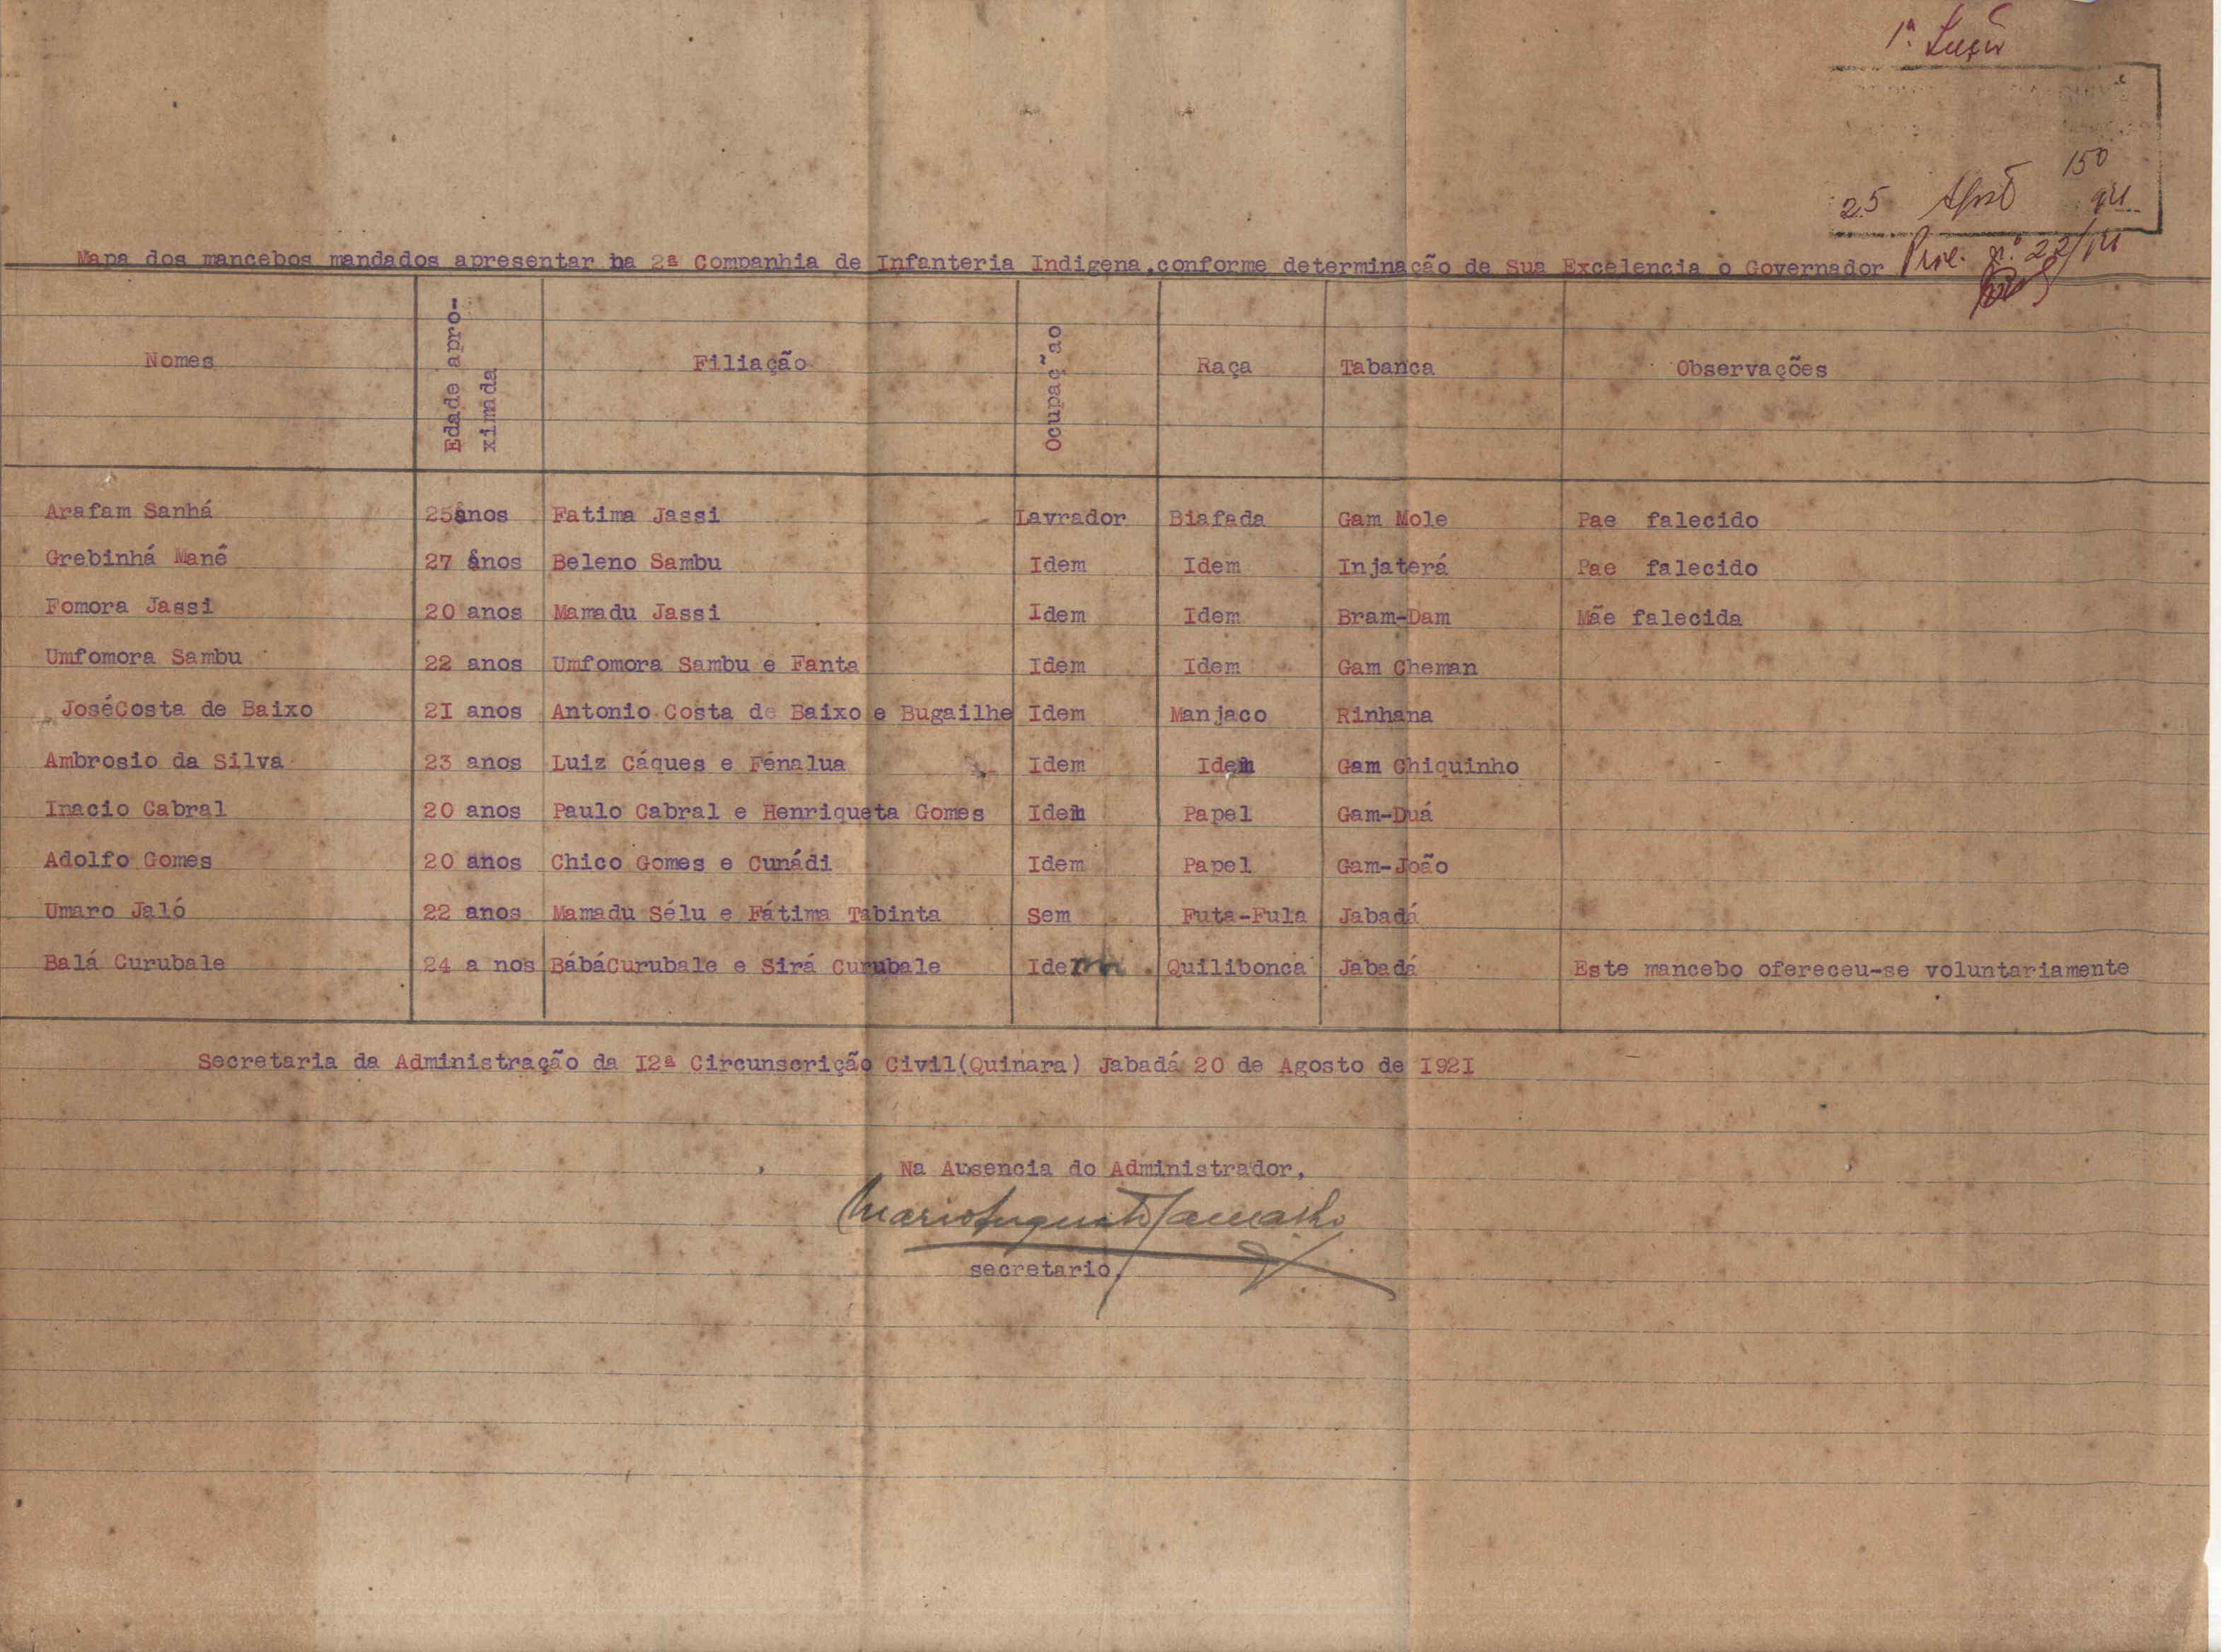 1ª
150
25
Mapa dos mancebos mandados apresentar na 2ª Companhia de Infanteria Indigena,conforme determinação de Sua Excelencia o Governador
Proc. nº 22/
Nomes Edade apro-ximada Filiação Ocupaç~ao Raça Tabanca Observações
Arafam Sanhá 25anos Fatima Jassi Lavrador Biafada Gam Mole Pae falecido
Grebinhá Mané 27 anos Beleno Sambu Idem Idem Injaterá Pae falecido
Fomora Jassi 20 anos Mamadu Jassi Idem Idem Bram-Dam Mãe falecida
Umfomora Sambu 22 anos Umfomora Sambu e Fanta Idem Idem Gam Cheman
JoséCosta de Baixo 2I anos Antonio Costa de Baixo e Bugailhe Idem Manjaco Rinhana
Ambrosio da Silva 23 anos Luiz Cáques e Fénalua Idem Idem Gam Chiquinho
Inacio Cabral 20 anos Paulo Cabral e Henriqueta Gomes Idem Papel Gam-Duá
Adolfo Gomes 20 anos Chico Gomes e Cunádi Idem Papel Gam-João
Umaro Jaló 22 anos Mamadu Sélu e Fátima Tabinta Sem Futa-Fula Jabadá
Balá Curubale 24 a nos BábáCurubale e Sirá Curubale Idem Quilibonca Jabadá Este mancebo ofereceu-se voluntariamente
Secretaria da Administração da I2ª Circunscrição Civil(Quinara) Jabadá 20 de Agosto de I92I
Na Ausencia do Administrador,
Mario Augusto
secretario,